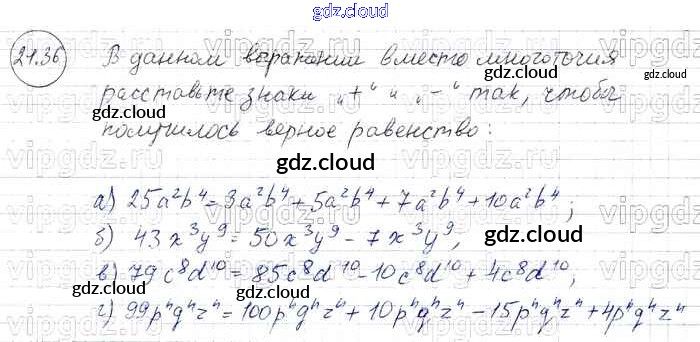 gdz.cloud
21.36 В данном выражении вместо многоточия
расставьте знаки „+“ и „–“ так, чтобы
получилось верное равенство:
gdz.cloud
gdz.cloud
gdz.cloud
а) 25a²b⁴ = 3a²b⁴ + 5a²b⁴ + 7a²b⁴ + 10a²b⁴;
б) 43x³y⁹ = 50x³y⁹ – 7x³y⁹,
gdz.cloud
в) 79c⁸d¹⁰ = 85c⁸d¹⁰ – 10c⁸d¹⁰ + 4c⁸d¹⁰,
gdz.cloud
gdz.cloud
г) 99pⁿqⁿzⁿ = 100pⁿqⁿzⁿ + 10pⁿqⁿzⁿ – 15pⁿqⁿzⁿ + 4pⁿqⁿzⁿ